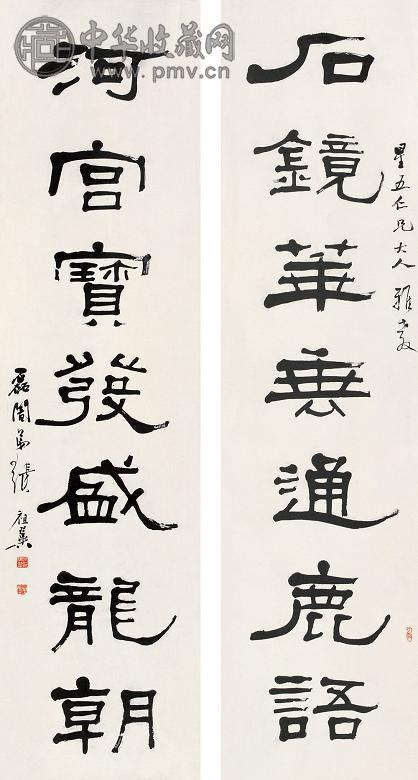 石鏡華通鹿語
星五仁兄大人雅教
河宮寶發盛龍朝
磊闇弟張祖翼
中华收藏网
www.pmv.cn